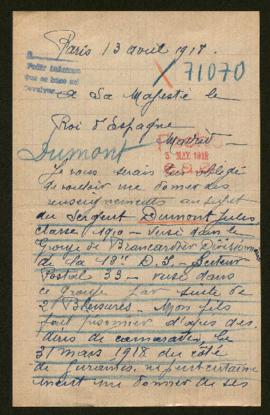 Paris 13 avril 1918.
X 71070
A Sa Majesté le
Roi d'Espagne
Madrid
3. MAY. 1918
Dumont
Je vous serais très obligé
de vouloir me donner des
renseignements au sujet
du Sergent Dumont Jules
classe 1910 - versé dans le
Groupe de Brancardier Divisionn
de la 18e D.I. - Secteur
Postal 33 - versé dans
ce groupe par suite de
2 Blessures - Mon fils
fait prisonnier d'après des
dires de camarades, le
31 mars 1918 du côté
de
ment me donner de ses